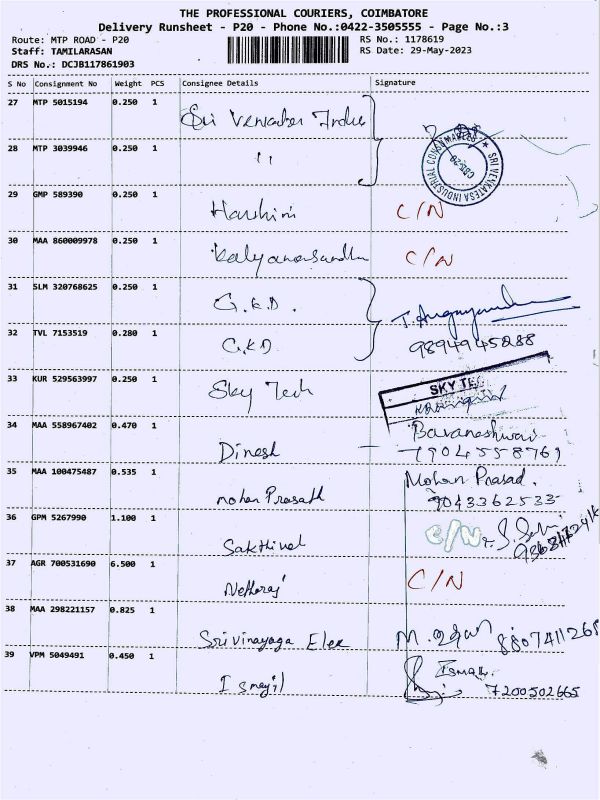 THE PROFESSIONAL COURIERS, COIMBATORE
Delivery Runsheet - P20 - Phone No.:0422-3505555 - Page No.:3
Route: MTP ROAD - P20
Staff: TAMILARASAN
DRS No.: DCJB117861903
RS No.: 1178619
RS Date: 29-May-2023
S No Consignment No Weight PCS Consignee Details Signature
27 MTP 5015194 0.250 1 Sri
28 MTP 3039946 0.250 1 "
SRI VENKATESA INDUSTRIAL
29 GMP 589390 0.250 1 Harshini C/N
30 MAA 860009978 0.250 1 C/N
31 SLM 320768625 0.250 1 G.K.D.
32 TVL 7153519 0.280 1 G.K.D 9894945288
33 KUR 529563997 0.250 1 Sky Tech SKY
34 MAA 558967402 0.470 1 Dinesh
35 MAA 100475487 0.535 1 mohan Prasath Mohan Prasad.
9043362533
36 GPM 5267990 1.100 1 Sakthivel C/N
37 AGR 700531690 6.500 1 Netharaj C/N
38 MAA 298221157 0.825 1 Sri vinayaga Elex 8807411268
39 VPM 5049491 0.450 1 Ismayil
7200502665